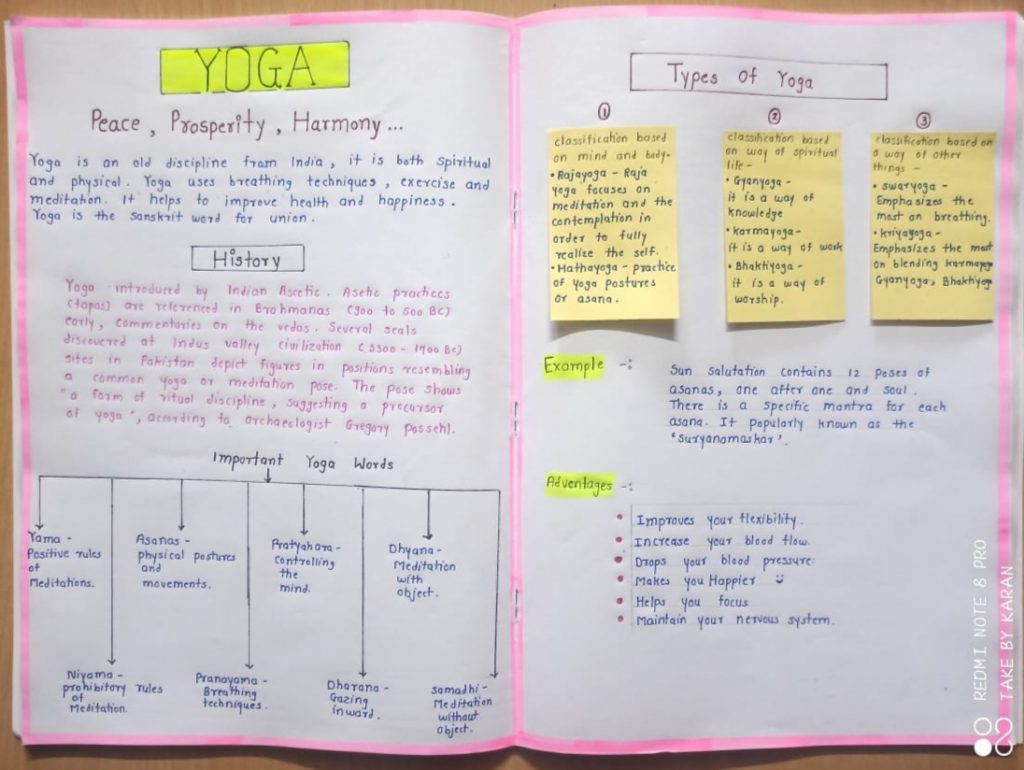 YOGA
Peace, Prosperity, Harmony...
Yoga is an old discipline from India, it is both Spiritual
and physical. Yoga uses breathing techniques, exercise and
meditation. It helps to improve health and happiness.
Yoga is the Sanskrit word for union.
History
Yoga introduced by Indian Ascetic. Asetic practices
(tapas) are referenced in Brahmanas (900 to 500 BC)
early, commentaries on the vedas. Several seals
discovered at Indus valley civilization (3300 - 1700 BC)
sites in Pakistan depict figures in positions resembling
a common yoga or meditation pose. The pose shows
"a form of ritual discipline, suggesting a precursor
of yoga", according to archaeologist Gregory Possehl.
Important Yoga Words
Yama -
Positive rules
of
Meditations.
Asanas -
physical postures
and
movements.
Pratyahara -
Controlling
the
mind.
Dhyana -
Meditation
with
object.
Niyama -
prohibitory rules
of
Meditation.
Pranayama -
Breathing
techniques.
Dharana -
Gazing
inward.
Samadhi -
Meditation
without
object.
Types Of Yoga
1
classification based
on mind and body-
• Rajayoga - Raja
yoga focuses on
meditation and the
contemplation in
order to fully
realize the self.
• Hathayoga - practice
of yoga postures
or asana.
2
classification based
on way of spiritual
life -
• Gyanyoga -
it is a way of
knowledge
• Karmayoga -
it is a way of work
• Bhaktiyoga -
it is a way of
worship.
3
classification based on
a way of other
things -
• Swaryoga -
Emphasizes the
most on breathing.
• Kriyayoga -
Emphasizes the most
on blending Karmayoga
Gyanyoga, Bhaktiyoga
Example -:
Sun salutation contains 12 poses of
asanas, one after one and soul.
There is a specific mantra for each
asana. It popularly known as the
'Suryanamaskar'.
Adventages -:
• Improves your flexibility.
• Increase your blood flow.
• Drops your blood pressure.
• Makes you Happier
• Helps you focus
• Maintain your nervous system.
REDMI NOTE 8 PRO
TAKE BY KARAN